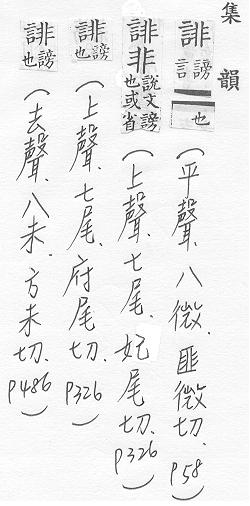 集韻
誹 謗言也(平聲、八微、匪微切、P58)
誹非 說文謗也或省(上聲、七尾、妃尾切、P326)
誹 謗也(上聲、七尾、府尾切、P326)
誹 謗也(去聲、八未、方未切、P486)